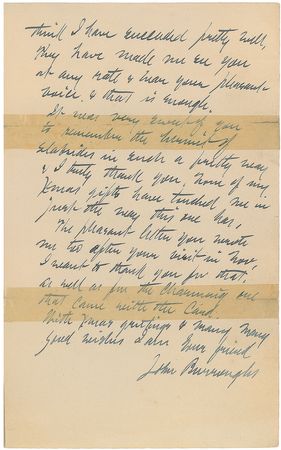 think I have succeeded pretty well,
they have made me see you
at any rate & hear your pleasant
voice, & that is enough.
It was very sweet of you
to remember the hermit of
Slabsides in such a pretty way
& I truly thank you. None of my
Xmas gifts have touched me in
just the way this one has.
The pleasant letter you wrote
me too after your visit in Nov.
I want to thank you for that,
as well as for the charming one
that came with the Card.
With Xmas greetings & many many
good wishes I am Your friend
John Burroughs